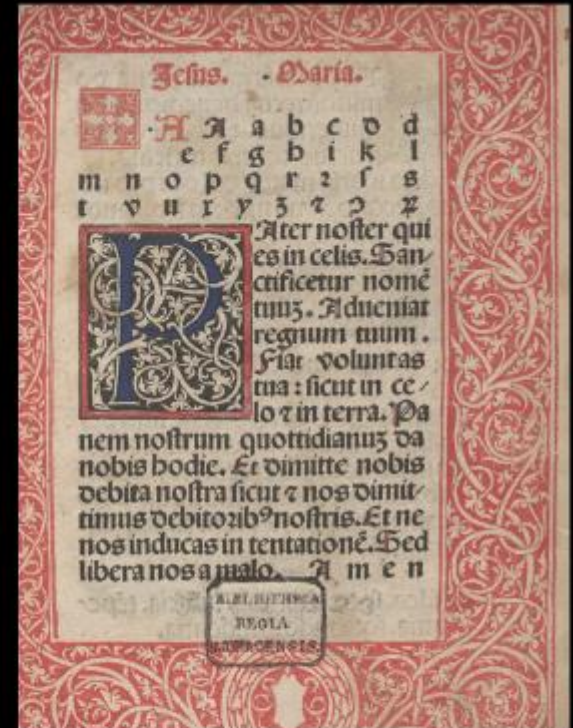 Jesus. Maria.
A A a b c d d
e f g h i k l
m n o p q r ꝛ ſ s
t v u x y z ⁊ ꝯ ꝝ
PAter noſter qui
es in celis. San⸗
ctificetur nomē
tuuꝫ. Adueniat
regnum tuum.
Fiat voluntas
tua : ſicut in ce⸗
lo ⁊ in terra. Pa
nem noſtrum quottidianuꝫ da
nobis hodie. Et dimitte nobis
debita noſtra ſicut ⁊ nos dimit⸗
timus debitoꝛibꝰ noſtris. Et ne
nos inducas in tentationē. Sed
libera nos a malo. A m e n
BIBLIOTHECA
REGIA